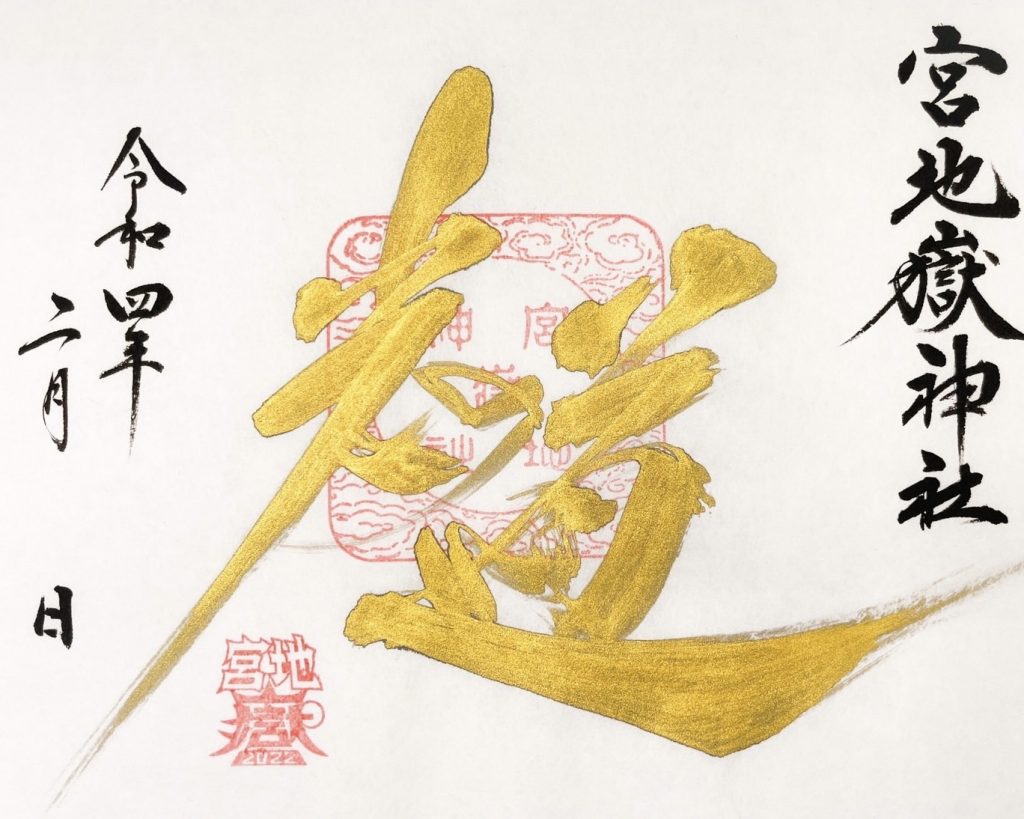 宮地嶽神社
光の道
宮地嶽
神社
令和四年
二月
日
宮地
2022